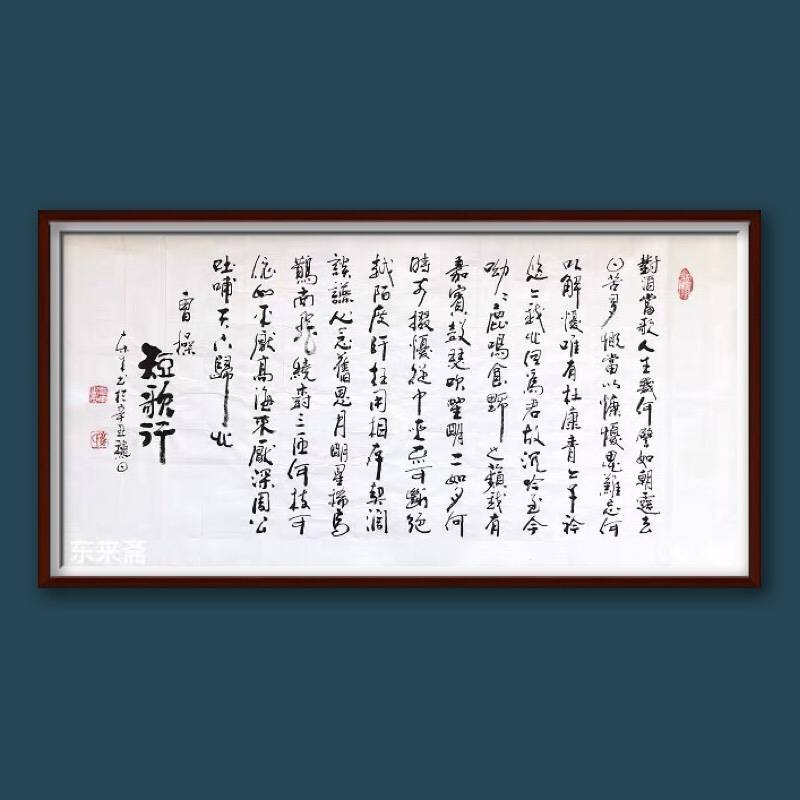 對酒當歌人生幾何譬如朝露去
日苦多慨當以慷憂思難忘何
以解憂唯有杜康青々子衿
悠々我心但為君故沉吟至今
呦々鹿鳴食野之蘋我有
嘉賓鼓瑟吹笙明々如月何
時可掇憂從中來不可斷絕
越陌度阡枉用相存契闊
談讌心念舊恩月明星稀烏
鵲南飛繞樹三匝何枝可
依山不厭高海不厭深周公
吐哺天下歸心
曹操
短歌行
书於辛丑穐日
东来斋